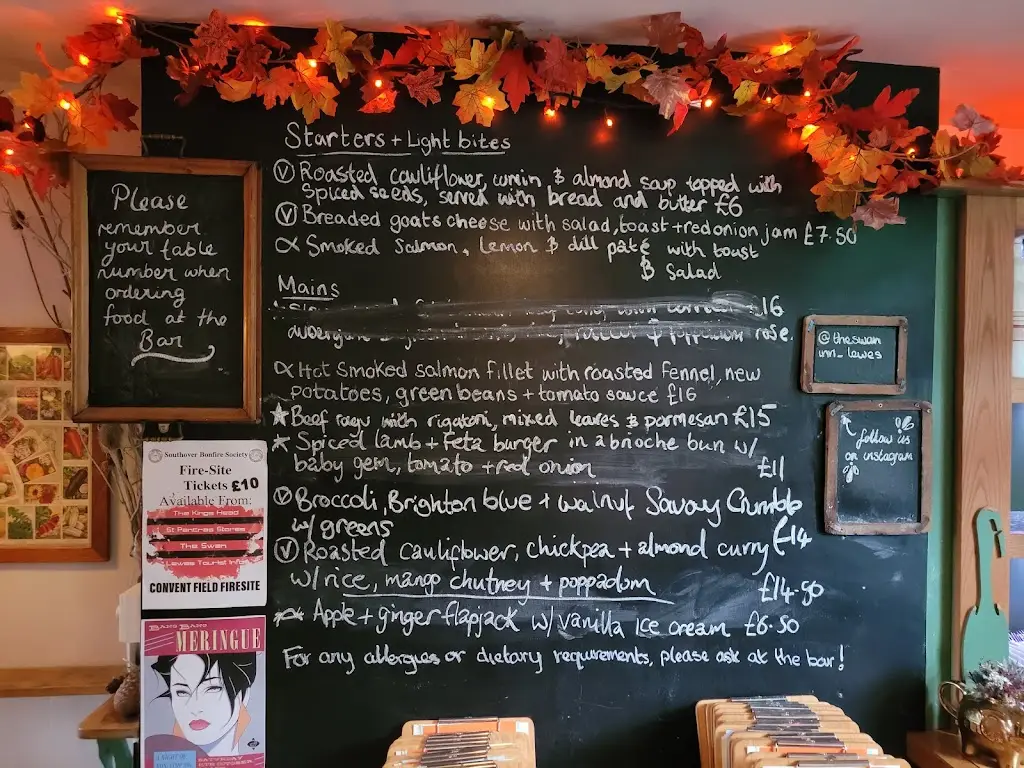 Starters + Light bites
Ⓥ Roasted cauliflower, cumin & almond soup topped with
spiced seeds, served with bread and butter £6
Ⓥ Breaded goats cheese with salad, toast + red onion jam £7.50
∝ Smoked Salmon, Lemon & dill pâté with toast
& Salad
Mains
£16
rose.
∝ Hot Smoked salmon fillet with roasted fennel, new
potatoes, green beans + tomato sauce £16
★ Beef ragu with rigatoni, mixed leaves & parmesan £15
★ Spiced lamb + feta burger in a brioche bun w/
baby gem, tomato + red onion £11
Ⓥ Broccoli, Brighton blue + walnut Savoy Crumble
w/ greens £14
Ⓥ Roasted Cauliflower, chickpea + almond curry
w/ rice, mango chutney + poppadum £14.50
Apple + ginger flapjack w/ vanilla ice cream £6.50
For any allergies or dietary requirements, please ask at the bar!
Please
remember
your table
number when
ordering
food at the
Bar
@theswan
inn_lewes
follow us
on instagram
Southover Bonfire Society
Fire-Site
Tickets £10
Available From:
The Kings Head
St Pancras Stores
The Swan
Lewes Tourist Info
CONVENT FIELD FIRESITE
BANG BANG
MERINGUE
SATURDAY